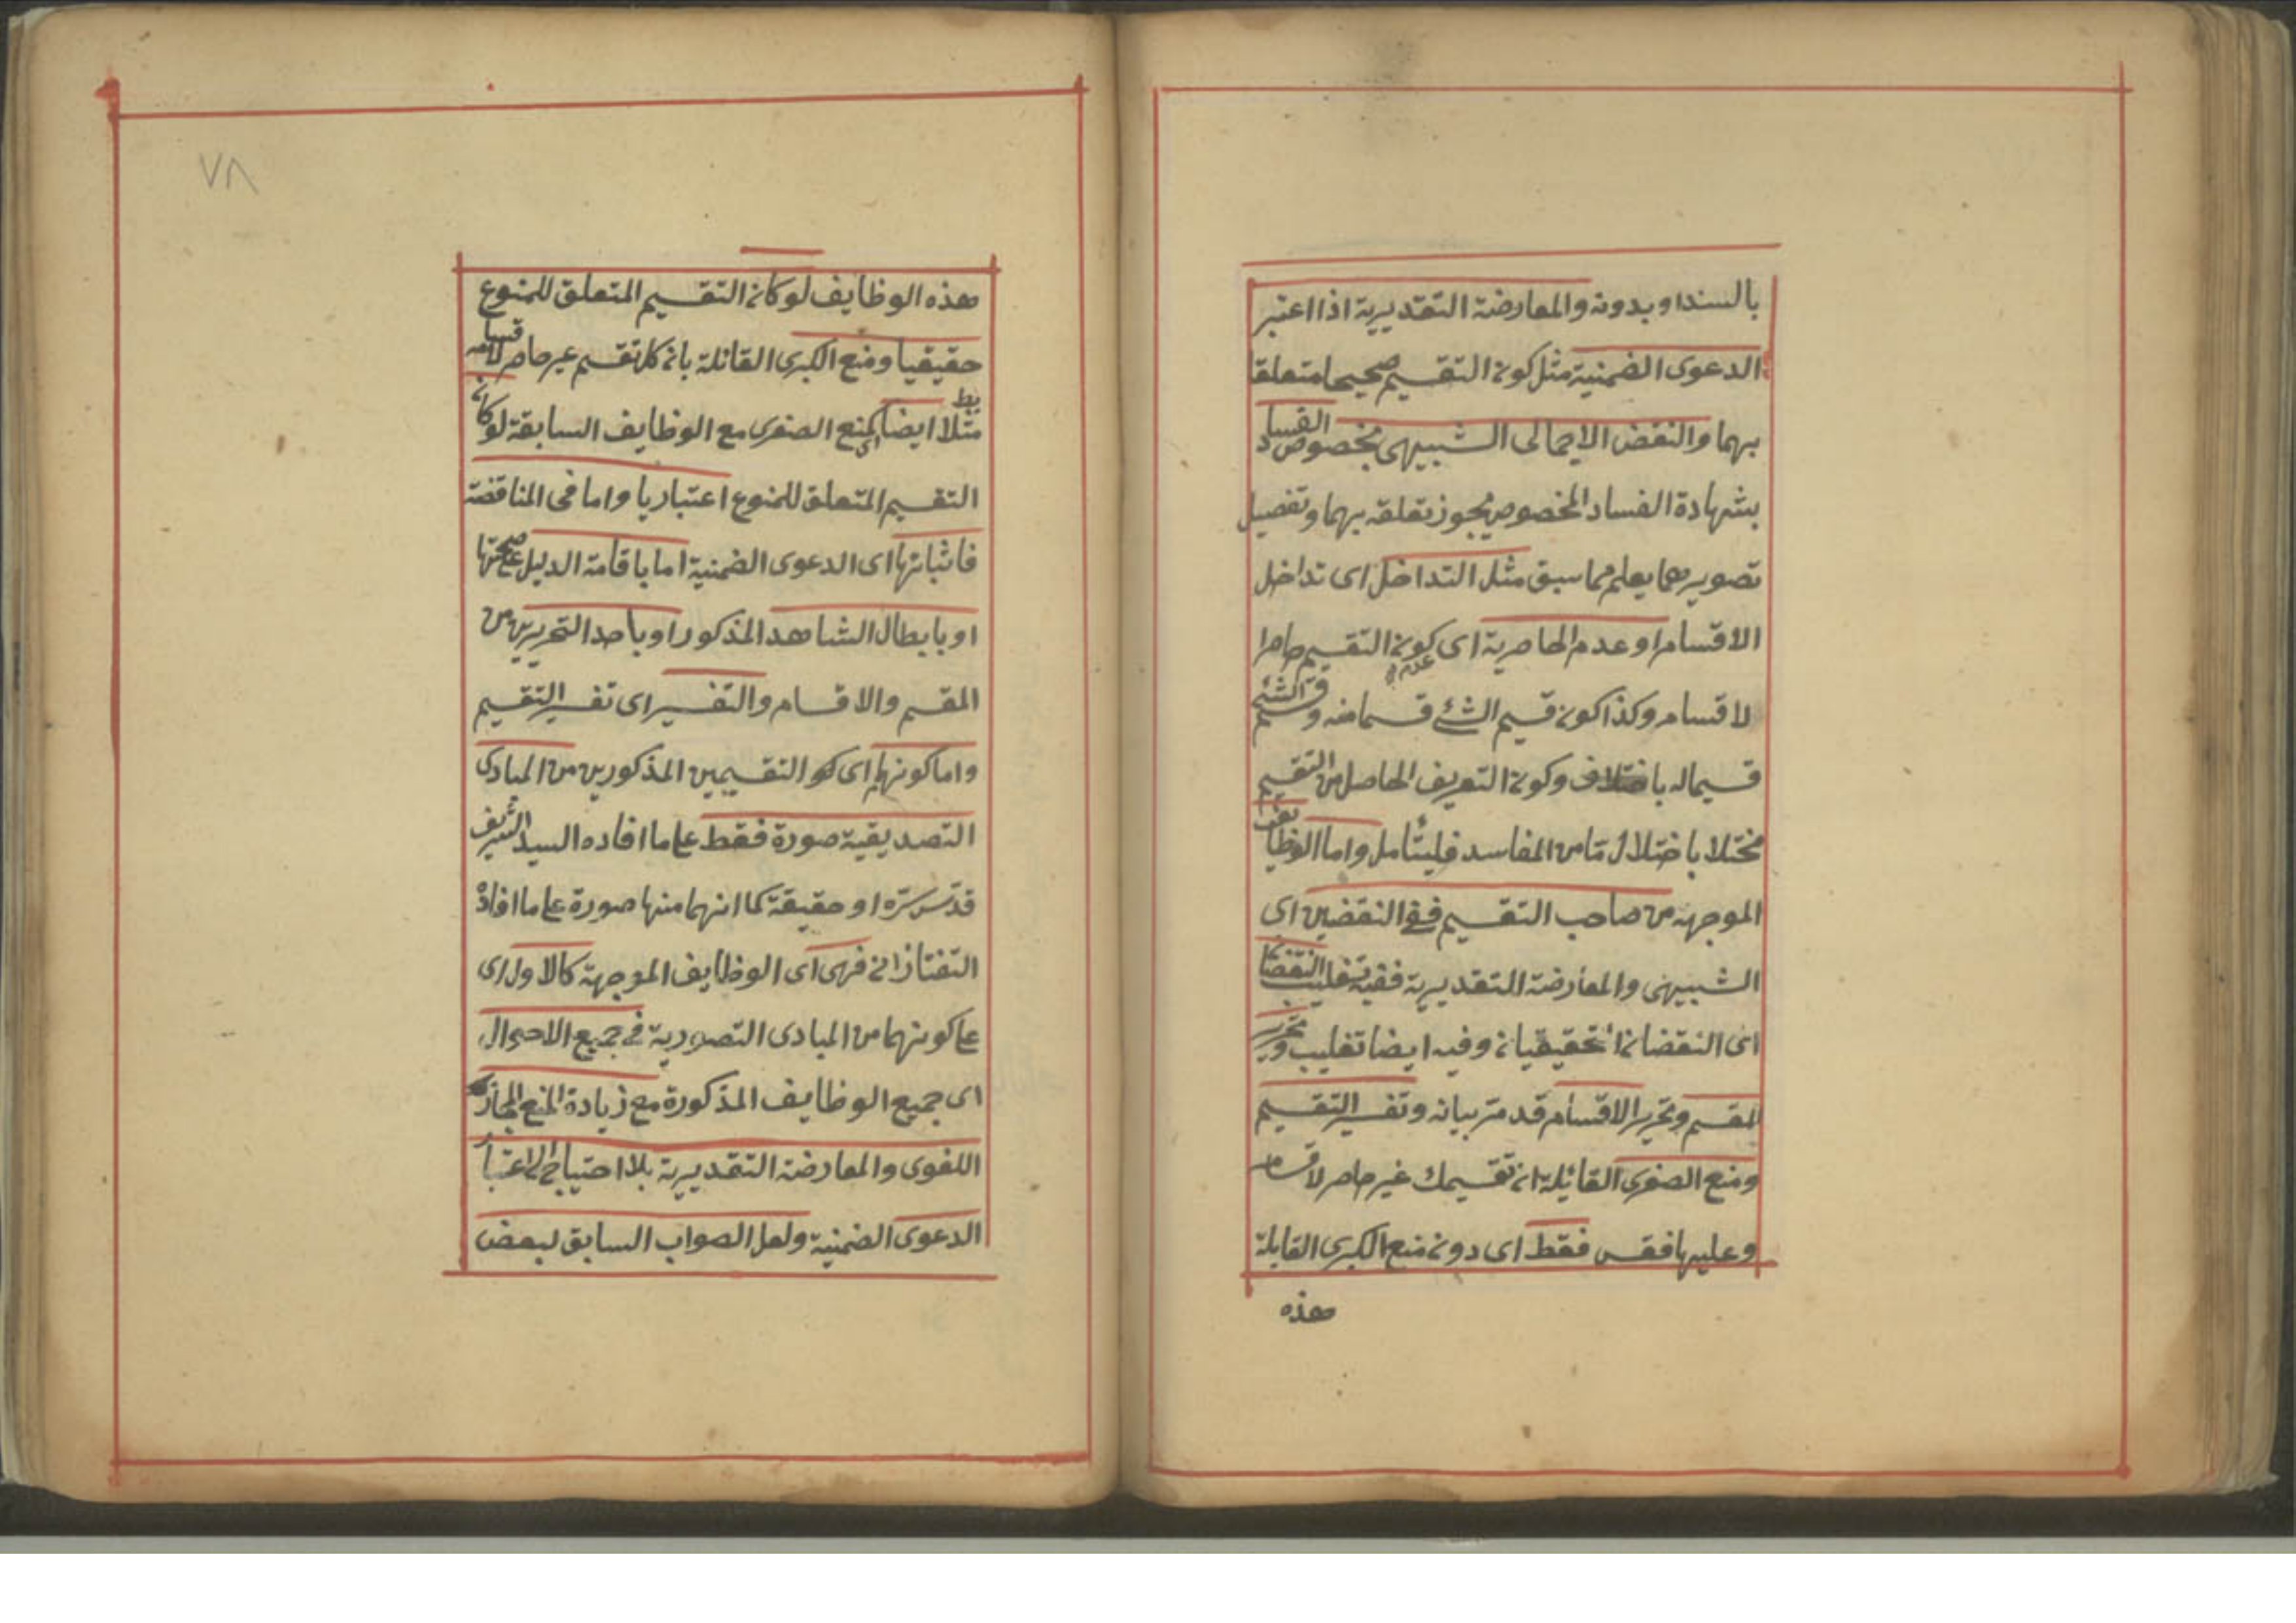 بالسند او بدونه والمعارضة التقديرية اذا اعتبر
الدعوى الضمنية مثل كون التقسيم صحيحا متعلقا
بهما والنقض الاجمالى الشبيهى بخصوص الفساد
بشهادة الفساد المخصوص يجوز تعلقه بهما وتفصيل
تصويرهما يعلم مما سبق مثل التداخل اى تداخل
الاقسام او عدم الحاصرية اى عدم كون التقسيم حاصرا
لاقسامه وكذا كون قسيم الشئ قسما منه وقسم الشئ
قسيما له باختلاف وكون التعريف الحاصل من التقسيم
مختلا باختلال مّا من المفاسد فليتأمل واما الوظايف
الموجهة من صاحب التقسيم ففى النقضين اى
الشبيهى والمعارضة التقديرية ففيه تغليب النقضا
اى النقضان التحقيقيان وفيه ايضا تغليب وتحرير
المقسم وتحرير الاقسام قد مرّ بيانه وتفسير التقسيم
ومنع الصغرى القائلة ان تقسيمك غير حاصر لاقسامه
وعليها فقس فقط اى دون منع الكبرى القايلة
هذه
٧٨
هذه الوظايف لو كان التقسيم المتعلق للمنوع
حقيقيا ومنع الكبرى القائلة بان كل تقسيم غير حاصر لاقسامه
مثلا ايضا اى كمنع الصغرى مع الوظايف السابقة لو كان
التقسيم المتعلق للمنوع اعتباريا واما فى المناقضة
فاثباتها اى الدعوى الضمنية اما باقامة الدليل على صحتها
او بابطال الشاهد المذكور او باحد التحريرين من
المقسم والاقسام والتفسير اى تفسير التقسيم
واما كونهما اى كو التقسيمين المذكورين من المبادى
التصديقية صورة فقط على ما افاده السيد الشريف
قدّس سرّه او حقيقة كما انهما منها صورة على ما افاده
التفتازانى فهى اى الوظايف الموجهة كالاول اى
على كونهما من المبادى التصورية فى جميع الاحوال
اى جميع الوظايف المذكورة مع زيادة المنع المجازى
اللغوى والمعارضة التقديرية بلا احتياج الى اعتبار
الدعوى الضمنية ولعل الصواب السابق لبعض